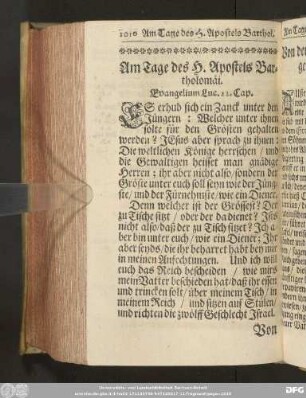 1010 Am Tage des H. Apostels Barthol.
Am Tage des H. Apostels Bar-
tholomäi.
Evangelium Luc. 22. Cap.
ES erhub sich ein Zanck unter den
Jüngern : Welcher unter ihnen
solte für den Grösten gehalten
werden ? JEsus aber sprach zu ihnen :
Die weltlichen Könige herrschen / und
die Gewaltigen heisset man gnädige
Herren ; ihr aber nicht also / sondern der
Gröste unter euch soll seyn wie der Jüng-
ste / und der Fürnehmste / wie ein Diener.
Denn welcher ist der Gröste ? Der
zu Tische sitzt / oder der da dienet ? Ists
nicht also / daß der zu Tisch sitzet ? Ich a-
ber bin unter euch / wie ein Diener : Ihr
aber seyds / die ihr beharret habt bey mir
in meinen Anfechtungen. Und ich will
euch das Reich bescheiden / wie mirs
mein Vatter bescheiden hat / daß ihr essen
und trincken solt / über meinem Tisch / in
meinem Reich / und sitzen auf Stülen /
und richten die zwölff Geschlecht Israel.
Von